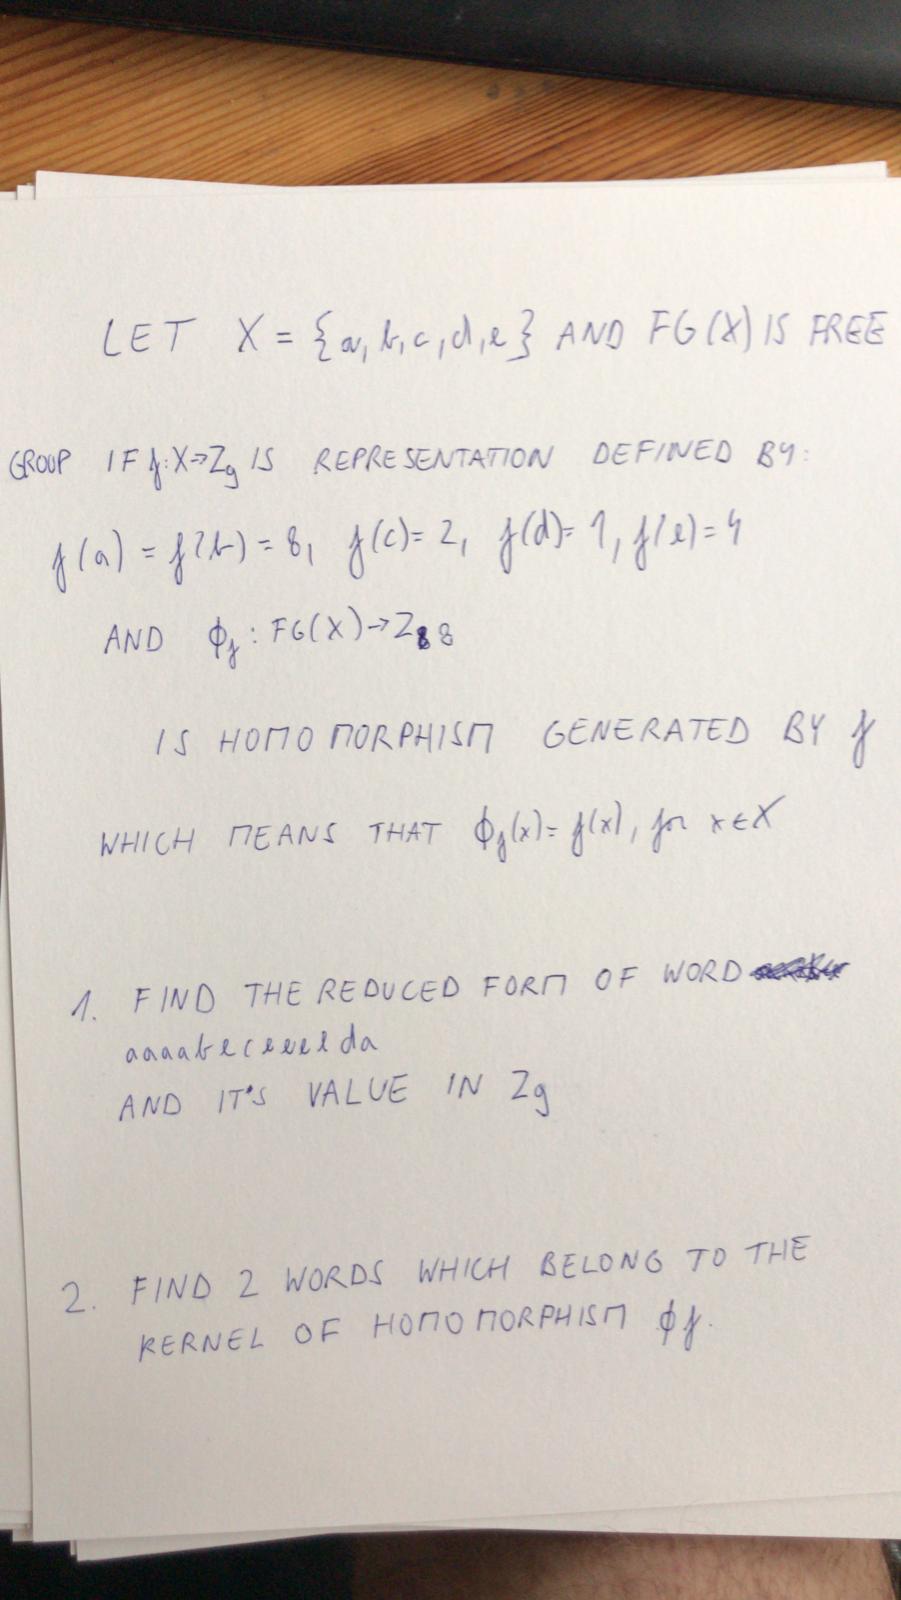 LET X = {a, b, c, d, e} AND FG(X) IS FREE
GROUP IF f: X→Z9 IS REPRESENTATION DEFINED BY:
f(a) = f(b) = 8, f(c) = 2, f(d) = 1, f(e) = 4
AND ϕf : FG(X) → Z8
IS HOMOMORPHISM GENERATED BY f
WHICH MEANS THAT ϕf(x) = f(x), for x∈X
1. FIND THE REDUCED FORM OF WORD
aaaabeceeeelda
AND IT'S VALUE IN Z9
2. FIND 2 WORDS WHICH BELONG TO THE
KERNEL OF HOMOMORPHISM ϕf.